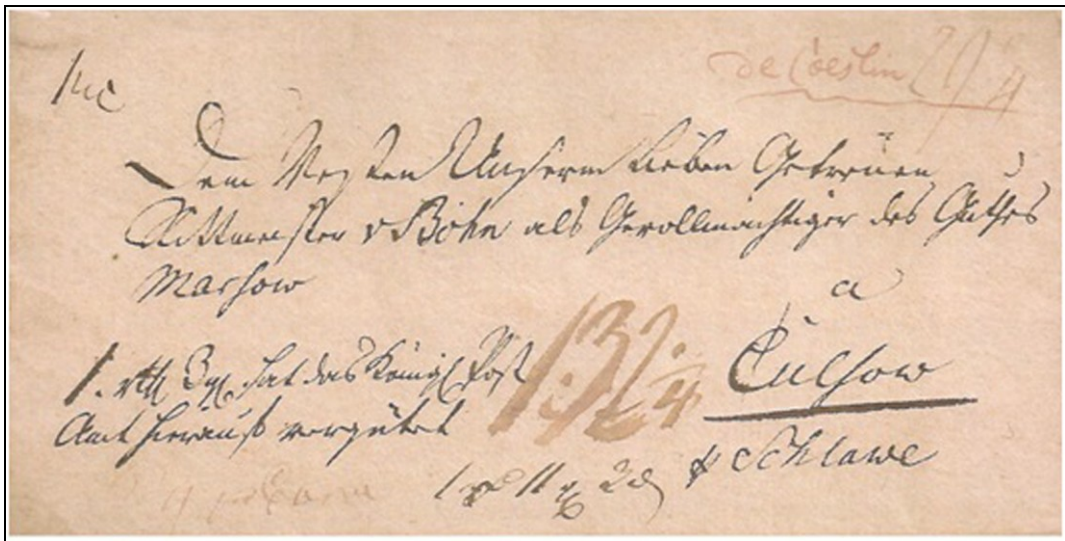 de Coeslin
Dem Vesten Unserm lieben Getreuen
Rittmeister v Bohn als Gevollmächtiger des Guthes
Marsow
a
Culsow
1. rtl 3 gl hat das Königl Post
Amt hierauß vergütet
p Schlawe